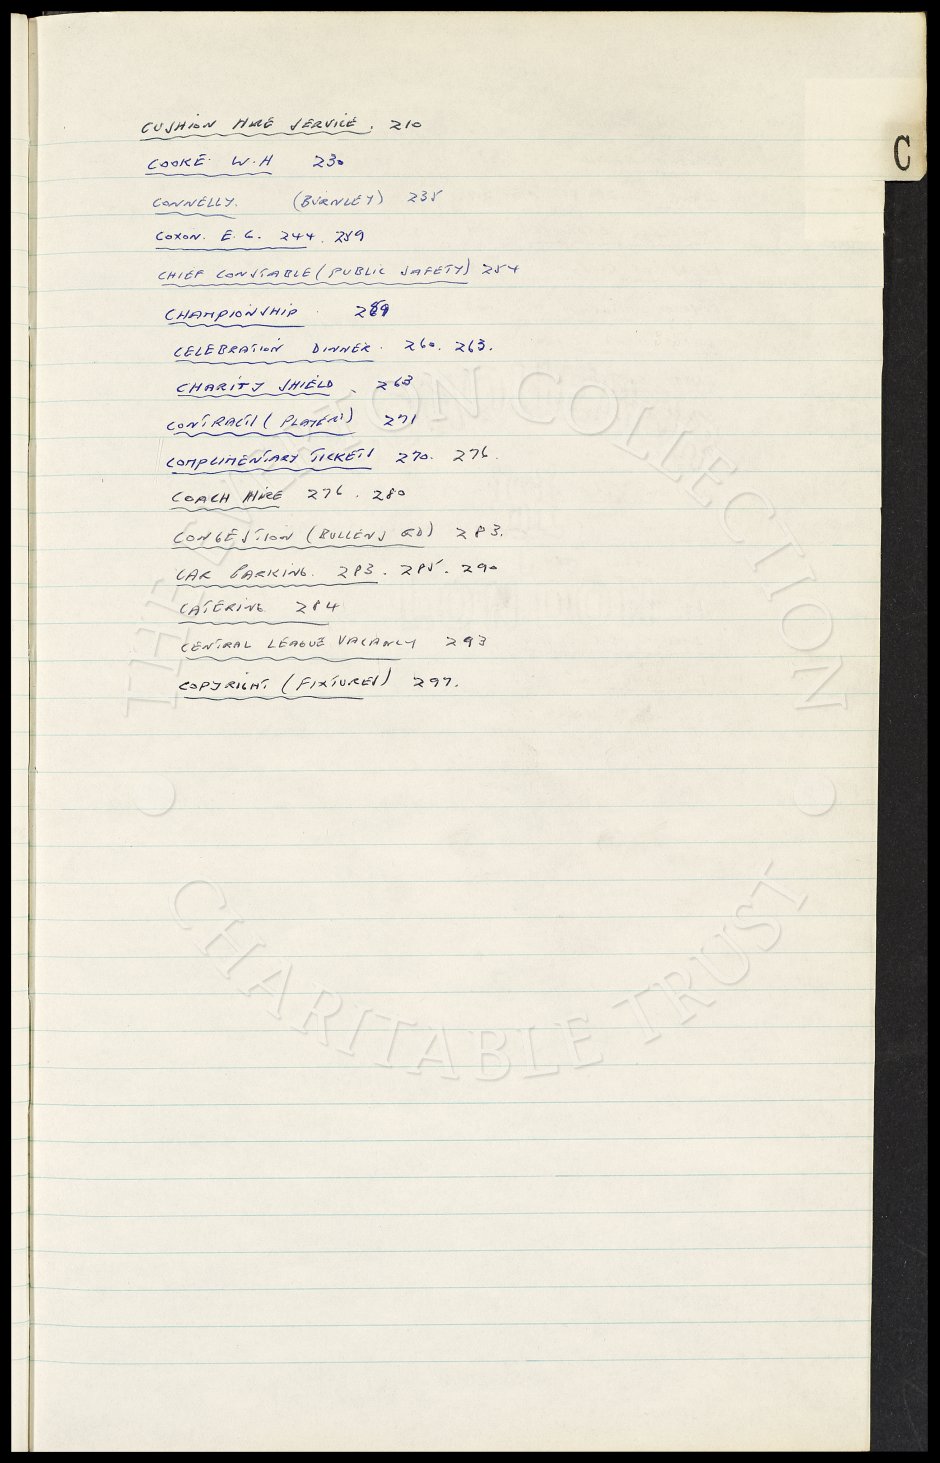 C
CUSHION HIRE SERVICE. 210
COOKE. W.H 230
CONNELLY. (BURNLEY) 235
COXON. E.G. 244. 259
CHIEF CONSTABLE (PUBLIC SAFETY) 254
CHAMPIONSHIP
CELEBRATION DINNER. 260. 263.
CHARITY SHIELD 263
CONTRACTS (PLAYERS) 271
COMPLIMENTARY TICKETS 270. 276.
COACH HIRE 276. 280
CONGESTION (BULLENS RD) 283.
CAR PARKING. 283. 285. 290
CATERING 284
CENTRAL LEAGUE VACANCY 293
COPYRIGHT (FIXTURES) 297.
THE EVERTON COLLECTION
CHARITABLE TRUST